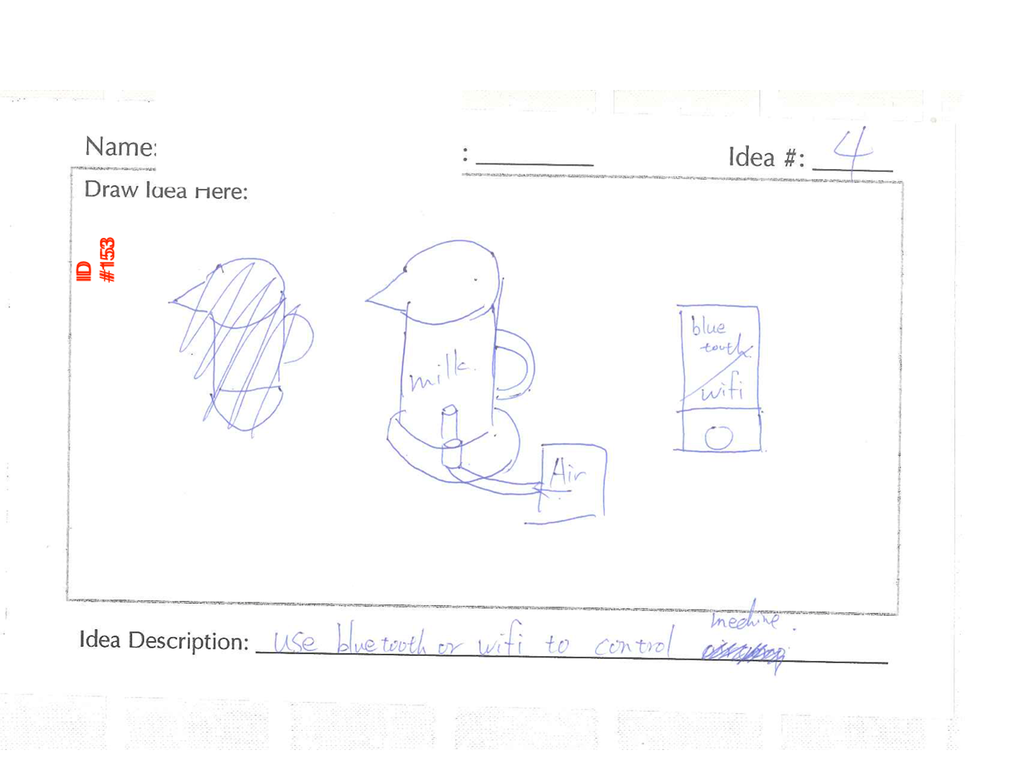 Name:
: Idea #: 4
Draw Idea Here:
IID
#153
milk.
Air
blue
tooth
wifi
mechine.
Idea Description: use bluetooth or wifi to control